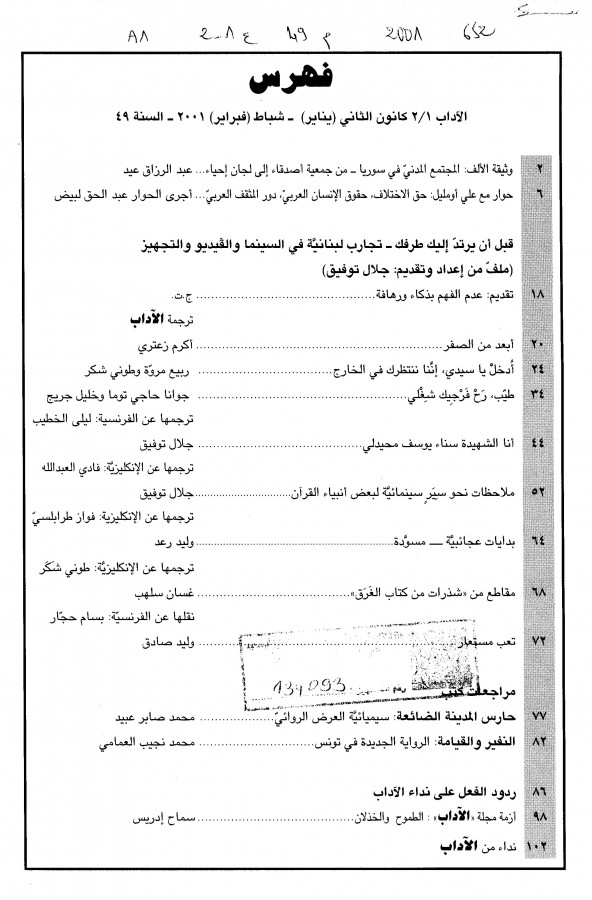 A1 2-1 ع 49 م 2001 652
فهرس
الآداب ٢/١ كانون الثاني (يناير) ـ شباط (فبراير) ٢٠٠١ ـ السنة ٤٩
٢ وثيقة الألف: المجتمع المدنيّ في سوريا ـ من جمعية أصدقاء إلى لجان إحياء... عبد الرزاق عيد
٦ حوار مع علي أومليل: حق الاختلاف، حقوق الإنسان العربيّ، دور المثقف العربيّ... أجرى الحوار عبد الحق لبيض
قبل أن يرتدّ إليك طرفك ـ تجارب لبنانيَّة في السينما والڤيديو والتجهيز
(ملفّ من إعداد وتقديم: جلال توفيق)
١٨ تقديم: عدم الفهم بذكاء ورهافة ج.ت.
ترجمة الآداب
٢٠ أبعد من الصفر أكرم زعتري
٢٤ أُدخلْ يا سيدي، إنَّنا ننتظرك في الخارج ربيع مروّة وطوني شكر
٣٤ طيّب، رَحْ فَرْجيك شِغْلي جوانا حاجي توما وخليل جريج
ترجمها عن الفرنسية: ليلى الخطيب
٤٤ أنا الشهيدة سناء يوسف محيدلي جلال توفيق
ترجمها عن الإنكليزيَّة: فادي العبدالله
٥٢ ملاحظات نحو سِيَرٍ سينمائيَّة لبعض أنبياء القرآن جلال توفيق
ترجمها عن الإنكليزية: فواز طرابلسيّ
٦٤ بدايات عجائبيَّة ـــ مسوّدة وليد رعد
ترجمها عن الإنكليزيَّة: طوني شكر
٦٨ مقاطع من «شذرات من كتاب الغَرَق» غسان سلهب
نقلها عن الفرنسيّة: بسام حجّار
٧٢ تعب مستعار وليد صادق
رقم 134093
مراجعات كتب
٧٧ حارس المدينة الضائعة: سيميائيَّة العرض الروائيّ محمد صابر عبيد
٨٢ النفير والقيامة: الرواية الجديدة في تونس محمد نجيب العمامي
٨٦ ردود الفعل على نداء الآداب
٩٨ أزمة مجلة «الآداب»: الطموح والخذلان سماح إدريس
١٠٢ نداء من الآداب